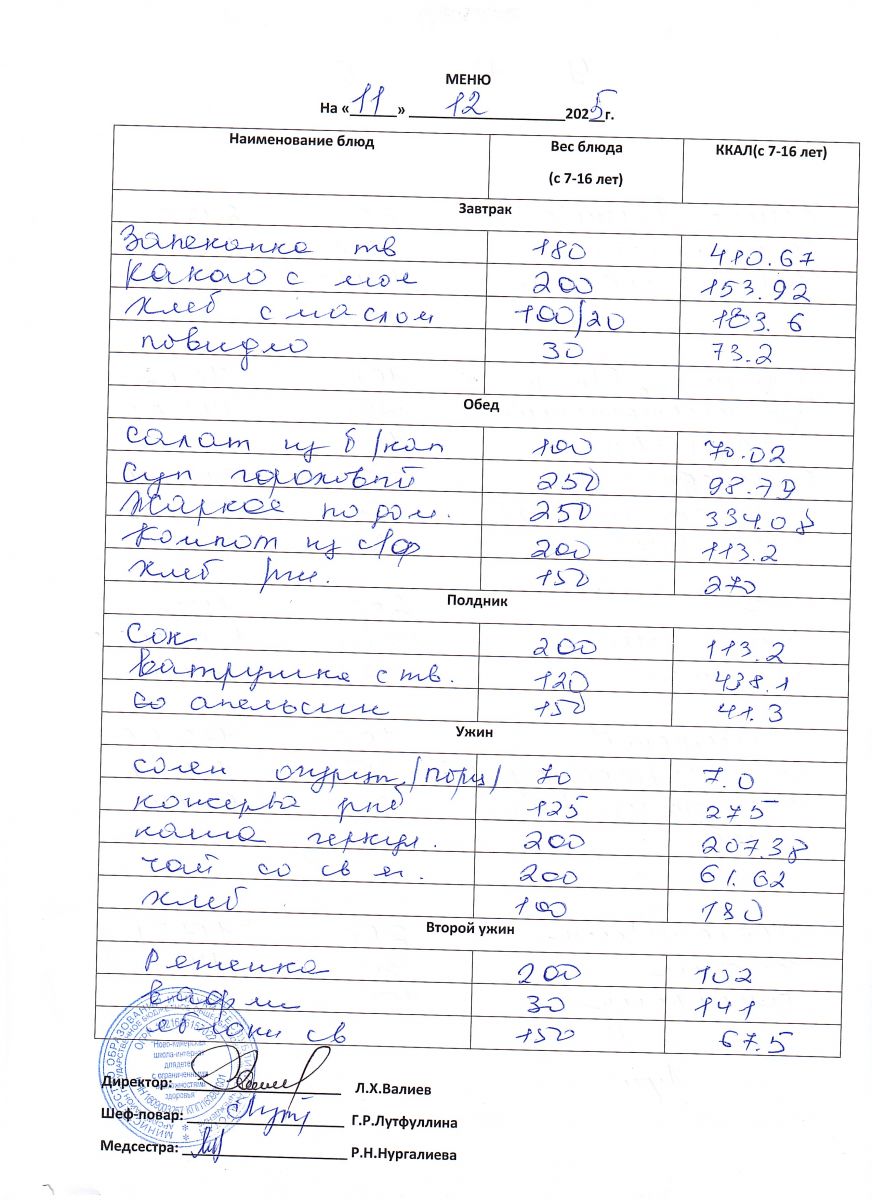 МЕНЮ
На «11» 12 2025г.
Наименование блюд Вес блюда (с 7-16 лет) ККАЛ(с 7-16 лет)
Завтрак
Запеканка тв 180 410.67
Какао с мол 200 153.92
Хлеб с маслом 100/20 183.6
повидло 30 73.2
Обед
Салат из б/кап 100 70.02
Суп гороховый 250 98.79
Жаркое по дом. 250 334.08
Компот из с/ф 200 113.2
Хлеб рж. 150 270
Полдник
Сок 200 113.2
Ватрушка с тв. 120 438.1
апельсин 150 41.3
Ужин
солен огурец /порц/ 70 7.0
консерва рыб 125 275
каша геркул. 200 207.38
чай со св я. 200 61.62
хлеб 100 180
Второй ужин
Ряженка 200 102
вафли 30 141
яблоки св 150 67.5
Ново-Кинерская
школа-интернат
для детей
с ограниченными
возможностями
здоровья
Директор: Л.Х.Валиев
Шеф-повар: Г.Р.Лутфуллина
Медсестра: Р.Н.Нургалиева